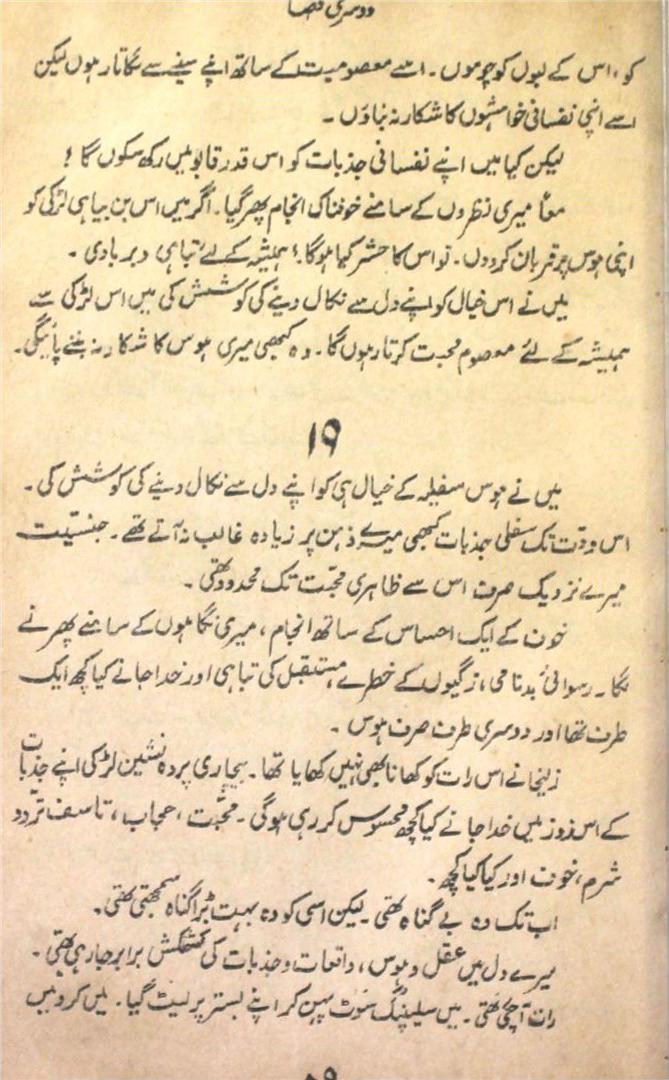 دوسری قضا
کو، اس کے لبوں کو چوموں۔ اسے معصومیت کے ساتھ اپنے سینے سے لگاتا رہوں لیکن
اسے اپنی نفسانی خواہشوں کا شکار نہ بناؤں ۔
لیکن کیا میں اپنے نفسانی جذبات کو اس قدر قابو میں رکھ سکوں گا !
معاً میری نظروں کے سامنے خوفناک انجام پھر گیا۔ اگر میں اس بن بیاہی لڑکی کو
اپنی ہوس پر قربان کردوں۔ تو اس کا حشر کیا ہوگا؟ ہمیشہ کے لئے تباہی و بربادی ۔
میں نے اس خیال کو اپنے دل سے نکال دینے کی کوشش کی میں اس لڑکی سے
ہمیشہ کے لئے معصوم محبت کرتا رہوں گا۔ وہ کبھی میری ہوس کا شکار نہ بننے پائیگی۔
۱۹
میں نے ہوس سفیلہ کے خیال ہی کو اپنے دل سے نکال دینے کی کوشش کی ۔
اس وقت تک سفلی جذبات کبھی میرے ذہن پر زیادہ غالب نہ آتے تھے ۔ جنسیت
میرے نزدیک صرف اس سے ظاہری محبّت تک محدود تھی ۔
خون کے ایک احساس کے ساتھ انجام ، میری نگاہوں کے سامنے پھرنے
لگا ۔ رسوائی، بدنامی، زگیوں کے خطرے، مستقبل کی تباہی اور خدا جانے کیا کچھ ایک
طرف تھا اور دوسری طرف صرف ہوس ۔
زلیخا نے اس رات کو کھانا بھی نہیں کھایا تھا ۔ بیچاری پردہ نشین لڑکی اپنے جذبات
کے اس زور میں خدا جانے کیا کچھ محسوس کر رہی ہوگی ۔ محبّت ، حجاب ، تاسف تردّد
شرم، خوف اور کیا کیا کچھ ۔
اب تک وہ بے گناہ تھی لیکن اسی کو وہ بہت بڑا گناہ سمجھتی تھی۔
میرے دل میں عقل و ہوس، واقعات و جذبات کی کشمکش برابر جاری تھی ۔
رات آچکی تھی ۔ میں سلیپنگ سوٹ پہن کر اپنے بستر پر لیٹ گیا ۔ میں کروٹیں